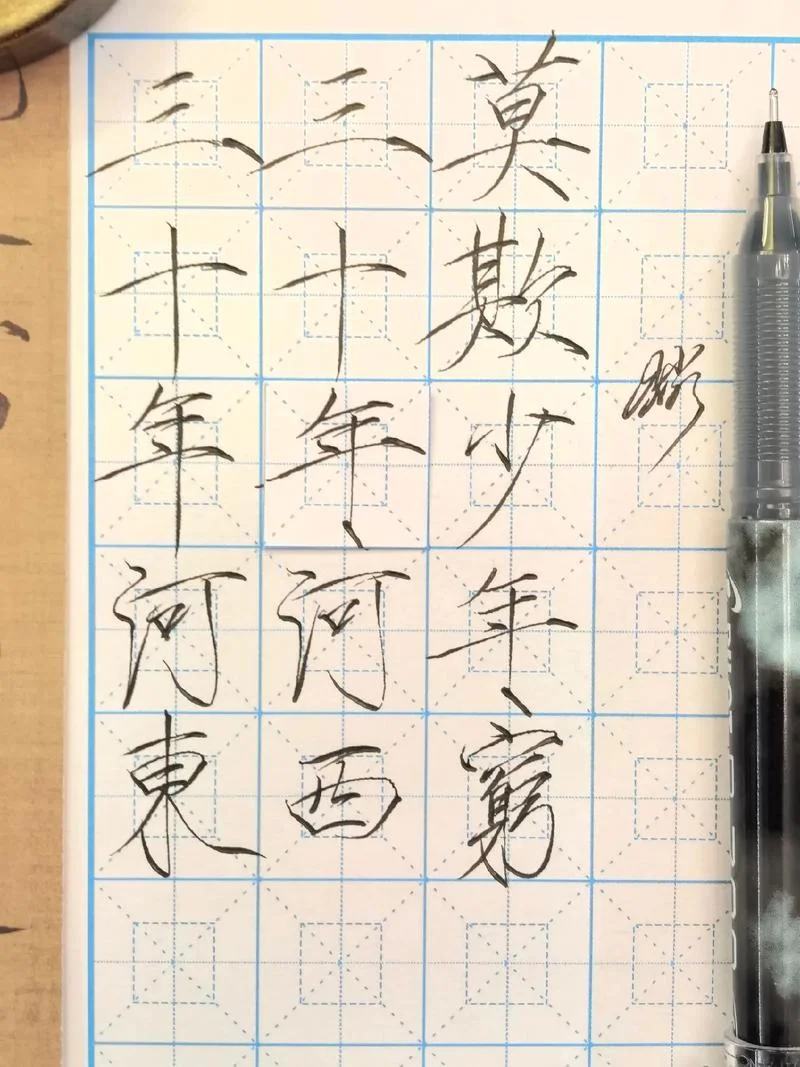 三十年河東
三十年河西
莫欺少年窮